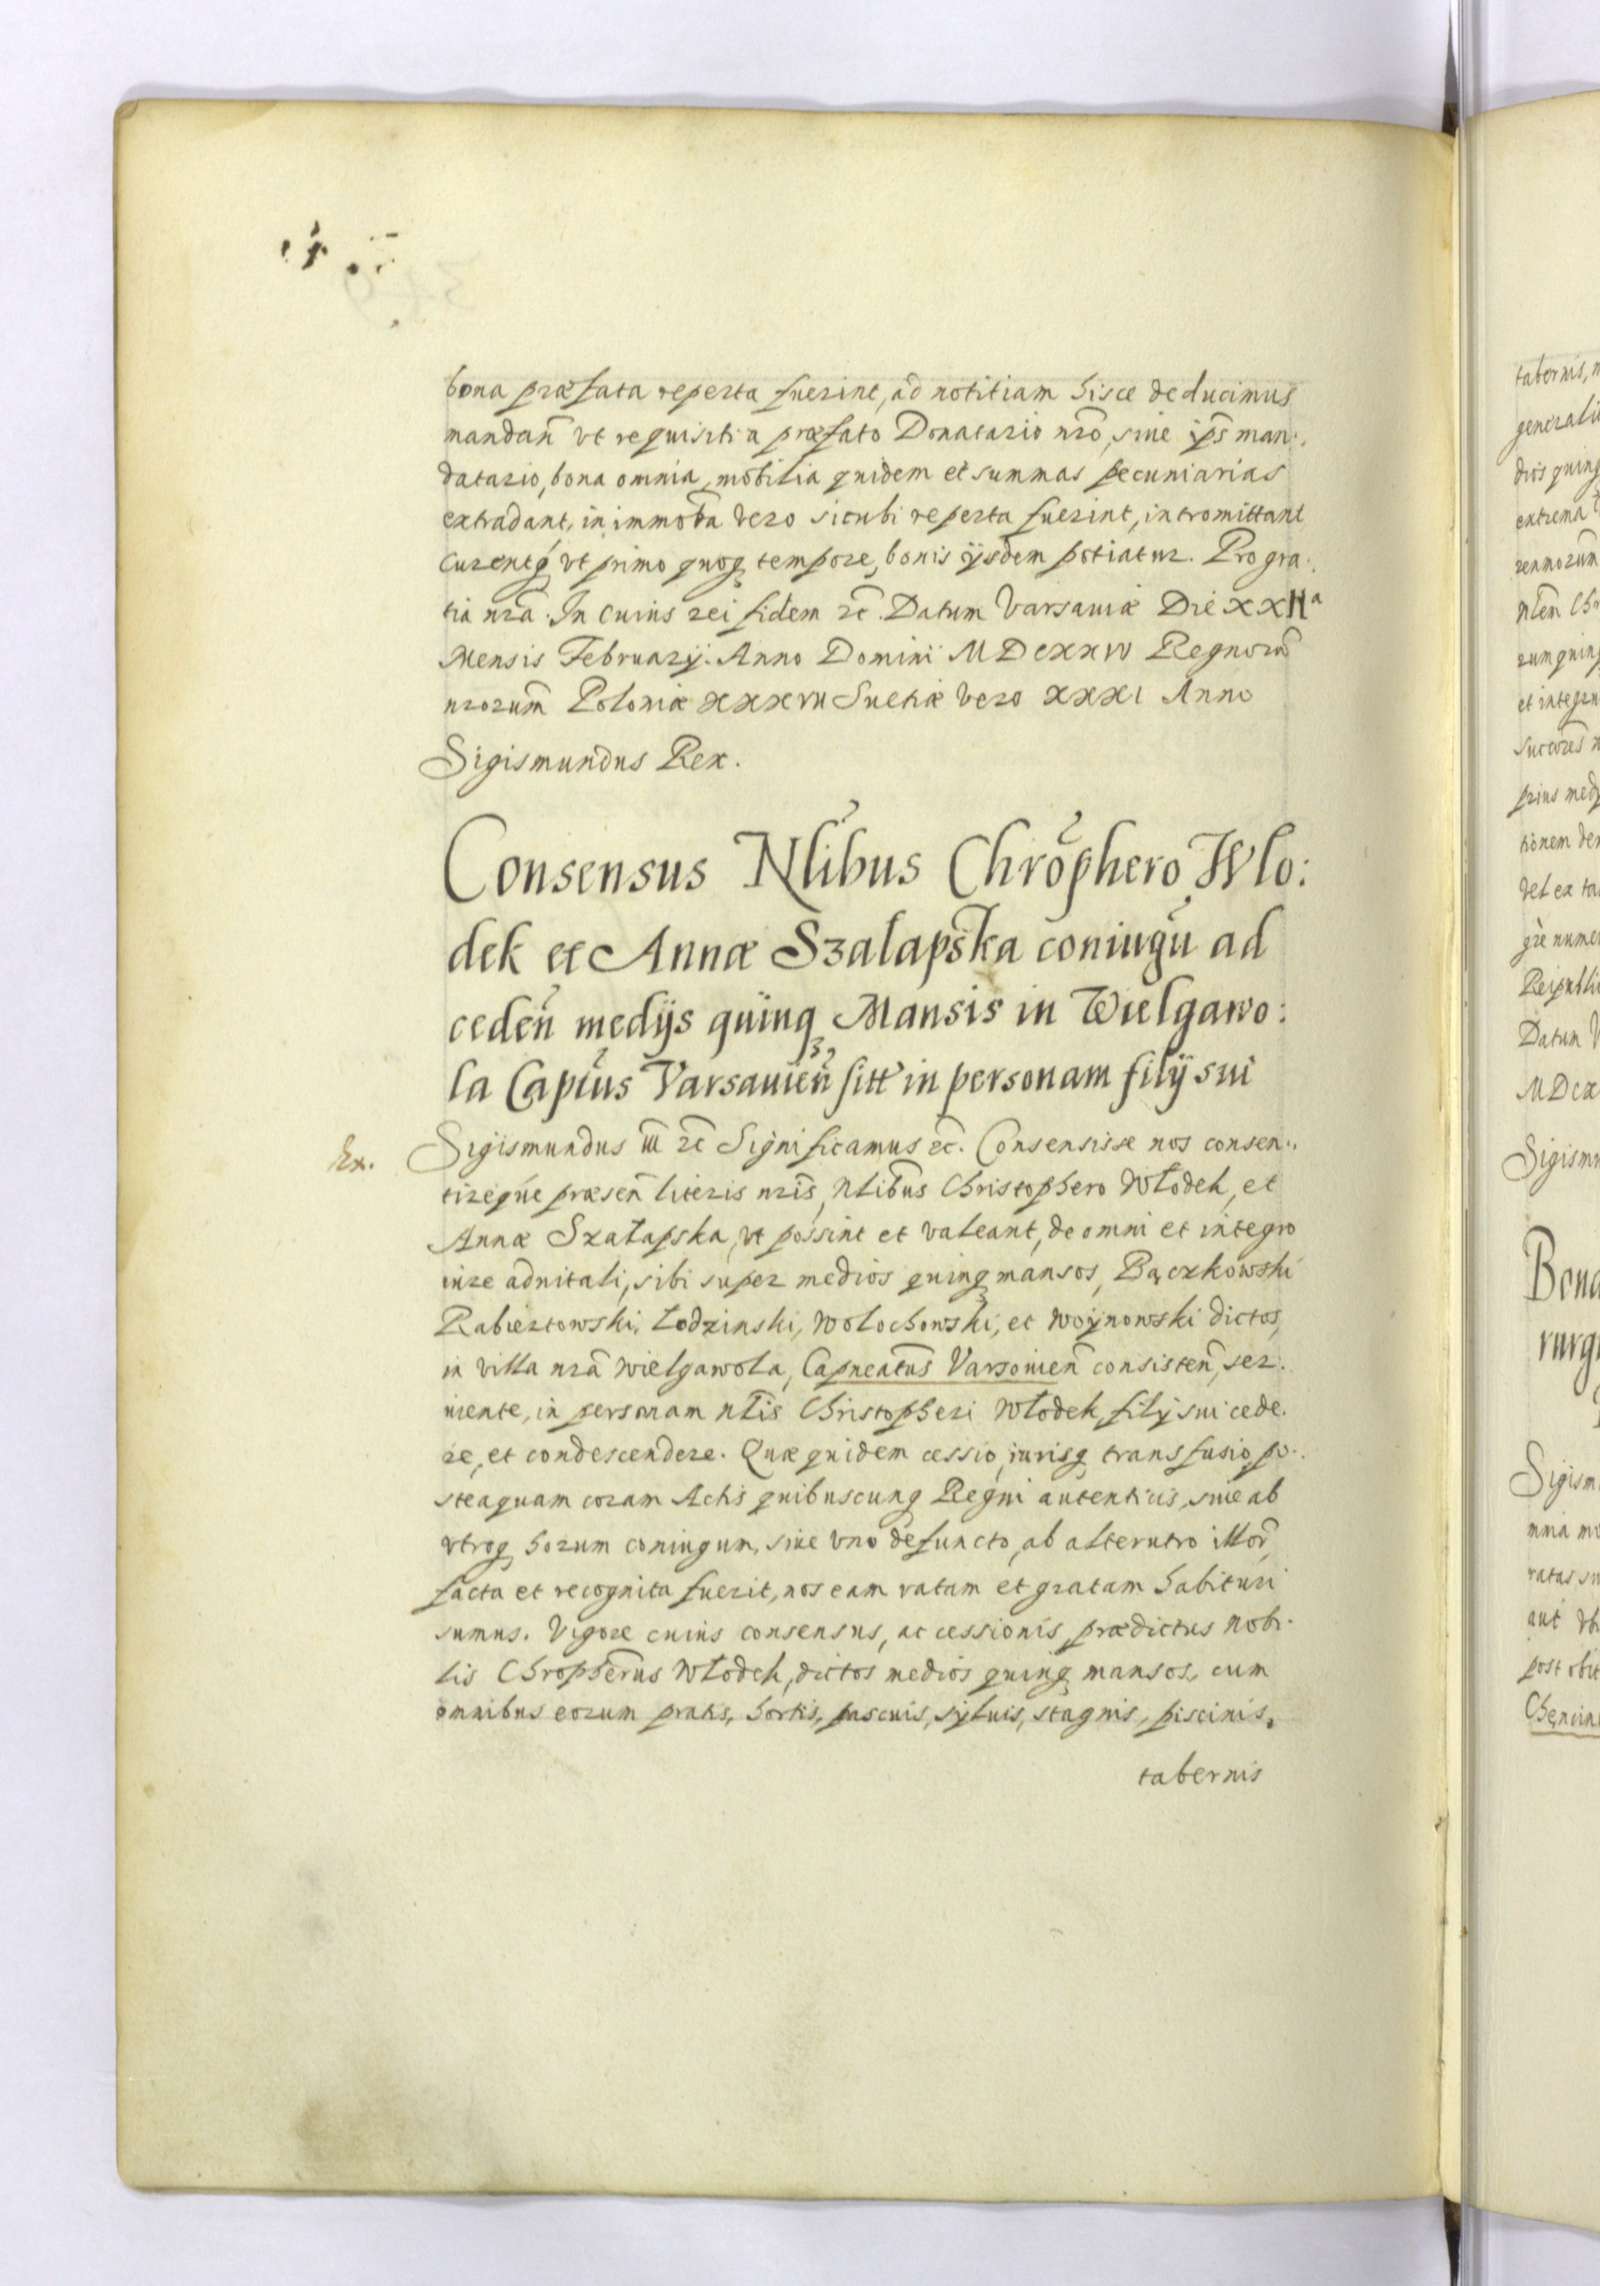 bona præfata reperta fuerint, ad notitiam hisce deducimus
mandan̄ vt requisiti a præfato Donatario nr̄o, siue ip̄s man:
datario, bona omnia, mobilia quidem et summas pecuniarias
extradant, in immob̄a vero sicubi reperta fuerint, intromittant
curentq́ vt primo quoq tempore, bonis ijsdem potiatur. Pro gra:
tia nr̄a. In cuius rei fidem ec̄. Datum Varsauiæ Die XXIIa
Mensis Februarij. Anno Domini MDCXXIV Regnorū
nrorum̄ Poloniæ XXXVII Suetiæ vero XXXI Anno
Sigismundus Rex.
Consensus Nlibus Chrõphero Wlo:
dek et Annæ Szalapska coniugũ ad
ceden̄ medijs quinq Mansis in Wielgawo:
la Captũs Varsauien̄ sitt in personam filij sui
Ex.
Sigismundus III ec̄ Significamus ec̄. Consensisse nos consen:
tireque præsen̄ literis nris̄, Nlibus̄ Christophero Włodek, et
Annæ Szałapska, vt possint et valeant, de omni et integro
iure aduitali, sibi super medios quinq mansos, Bączkowski
Rabiertowski, Łodzinski, Wołochowski, et Woynowski dictos,
in villa nrā Wielgawola, Capneatūs Varsouien̄ consisten̄, ser:
uiente, in personam Nlis̄ Christopheri Włodek, filij sui cede:
re, et condescendere. Quæ quidem cessio, iurisq transfusio, po:
steaquam coram Actis quibuscunq Regni autenticis, siue ab
vtroq horum coniugum, siue vno defuncto, ab alterutro illor̄,
facta et recognita fuerit, nos eam ratam et gratam habituri
sumus. Vigore cuius consensus, ac cessionis prædictus Nobi:
lis Chropherus̄ Włodek, dictos medios quinq mansos, cum
omnibus eorum pratis, hortis, pascuis, syluis, stagnis, piscinis,
tabernis